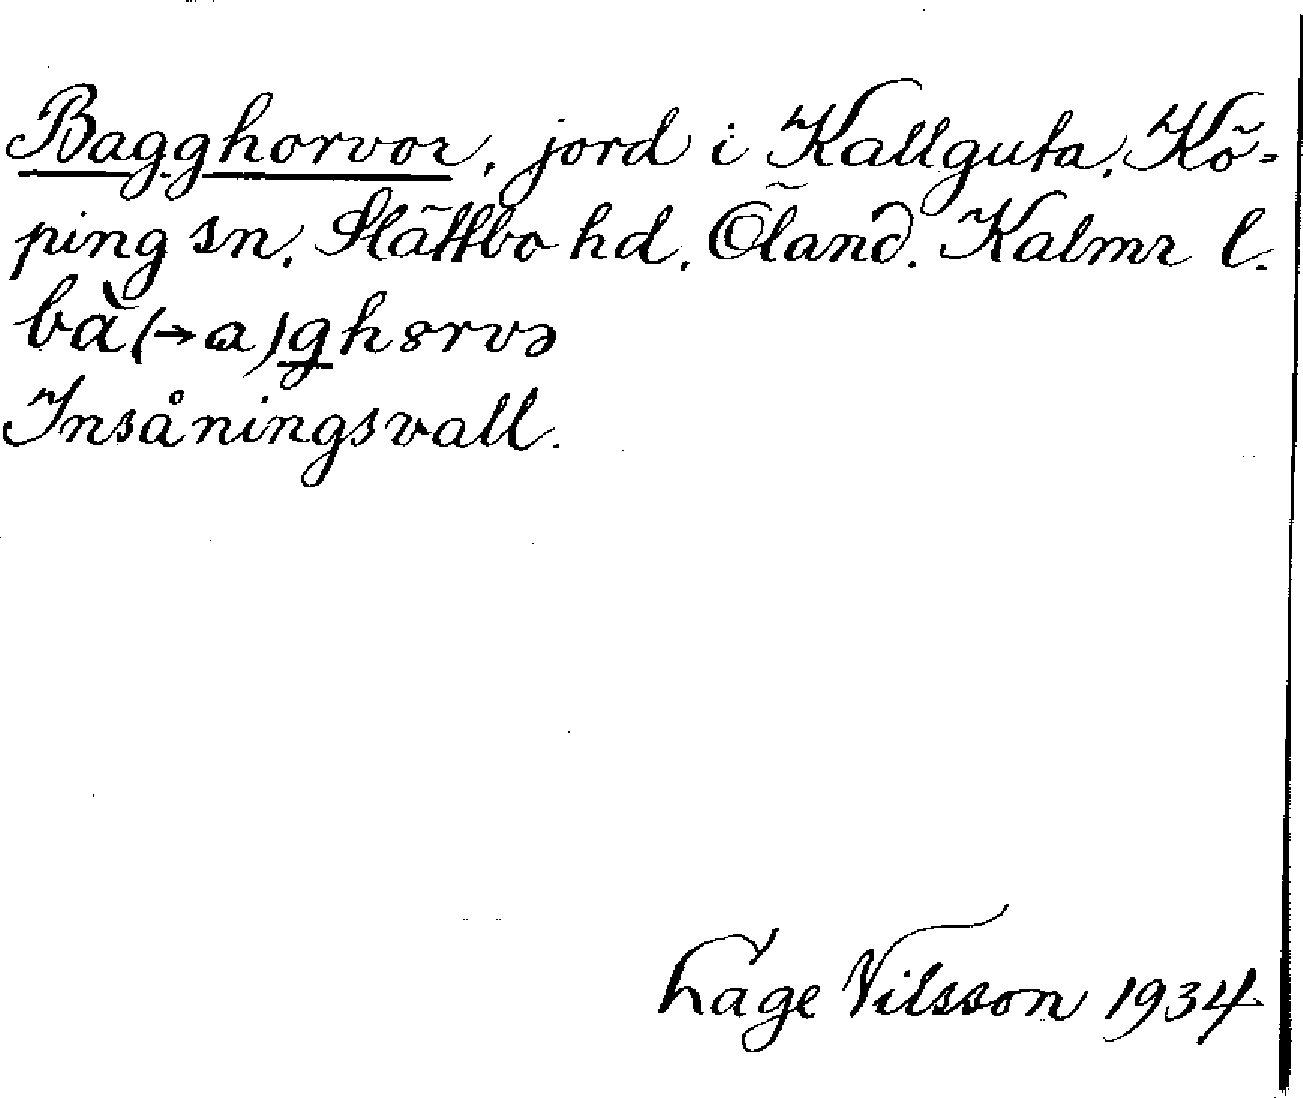 Bagghorvor, jord i Kallguta, Kö-
ping sn, Slättbo hd, Öland. Kalmr l.
bà(→a)ghɞrvə
Insåningsvall.
Tage Nilsson 1934